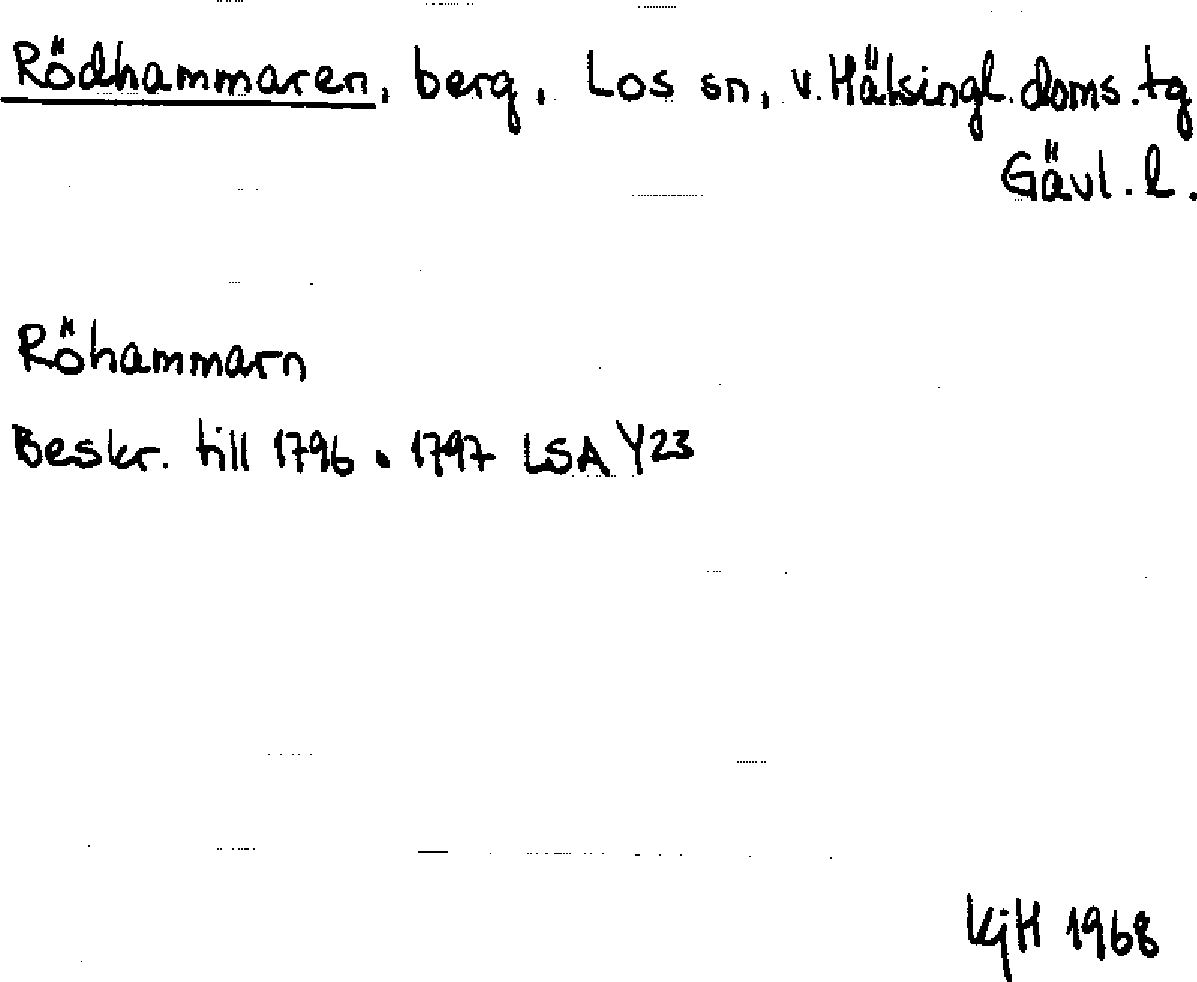 Rödhammaren, berg, Los sn, v. Hälsingl. doms. tg
Gävl. l.
Röhammarn
Beskr. till 1796 . 1797 LSA Y23
KjH 1968